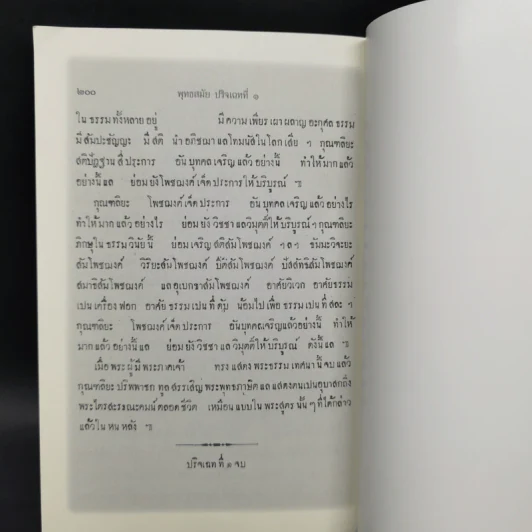 ๒๐๐ พุทธสมัย ปริจเฉทที่ ๑
ใน ธรรม ทั้งหลาย อยู่ มี ความ เพียร เผา ผลาญ อะกุศล ธรรม
มี สัมปะชัญญะ มี สติ นำ อภิชฌา แล โทมนัส ใน โลก เสีย ฯ กุณฑลิยะ
สติปัฏฐาน สี่ ประการ อัน บุคคล เจริญ แล้ว อย่างนี้ ทำ ให้ มาก แล้ว
อย่างนี้ แล ย่อม ยัง โพชฌงค์ เจ็ด ประการ ให้ บริบูรณ์ ๚
กุณฑลิยะ โพชฌงค์ เจ็ด ประการ อัน บุคคล เจริญ แล้ว อย่างไร
ทำ ให้ มาก แล้ว อย่างไร ย่อม ยัง วิชชา แล วิมุตติ ให้ บริบูรณ์ ฯ กุณฑลิยะ
ภิกษุ ใน ธรรม วินัย นี้ ย่อม เจริญ สติสัมโพชฌงค์ ฯลฯ ธัมมะวิจะยะ
สัมโพชฌงค์ วิริยะสัมโพชฌงค์ ปีติสัมโพชฌงค์ ปัสสัทธิสัมโพชฌงค์
สมาธิสัมโพชฌงค์ แล อุเบกขาสัมโพชฌงค์ อาศัย วิเวก อาศัย ธรรม
เปน เครื่อง ฟอก อาศัย ธรรม เปน ที่ ดับ น้อม ไป เพื่อ ธรรม เปน ที่ สละ ฯ
กุณฑลิยะ โพชฌงค์ เจ็ด ประการ อัน บุคคล เจริญ แล้ว อย่างนี้ ทำ ให้
มาก แล้ว อย่างนี้ แล ย่อม ยัง วิชชา แล วิมุตติ ให้ บริบูรณ์ ดังนี้ แล ๚
เมื่อ พระ ผู้ มี พระ ภาค เจ้า ทรง แสดง พระ ธรรม เทศนา นี้ จบ แล้ว
กุณฑลิยะ ปริพพาชก ทูล สรรเสริญ พระ พุทธ ภาษิต แล แสดง ตน เปน อุบาสก ถึง
พระ ไตร สะระณะคมน์ ตลอด ชีวิต เหมือน แบบ ใน พระ สูตร นั้น ๆ ที่ ได้ กล่าว
แล้ว ใน หน หลัง ๚
ปริจเฉท ที่ ๑ จบ